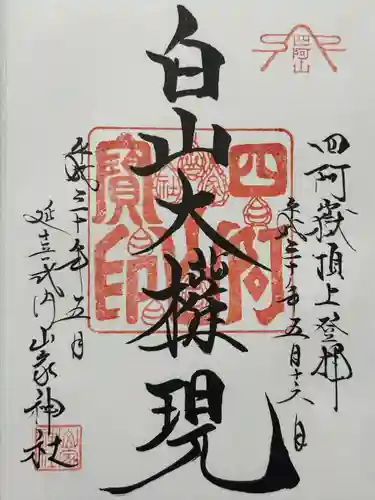 四阿山
四阿嶽頂上登拝
平成三十年五月十六日
白山大権現
四阿
山
寶印
平成三十年五月
延喜式内山家神社